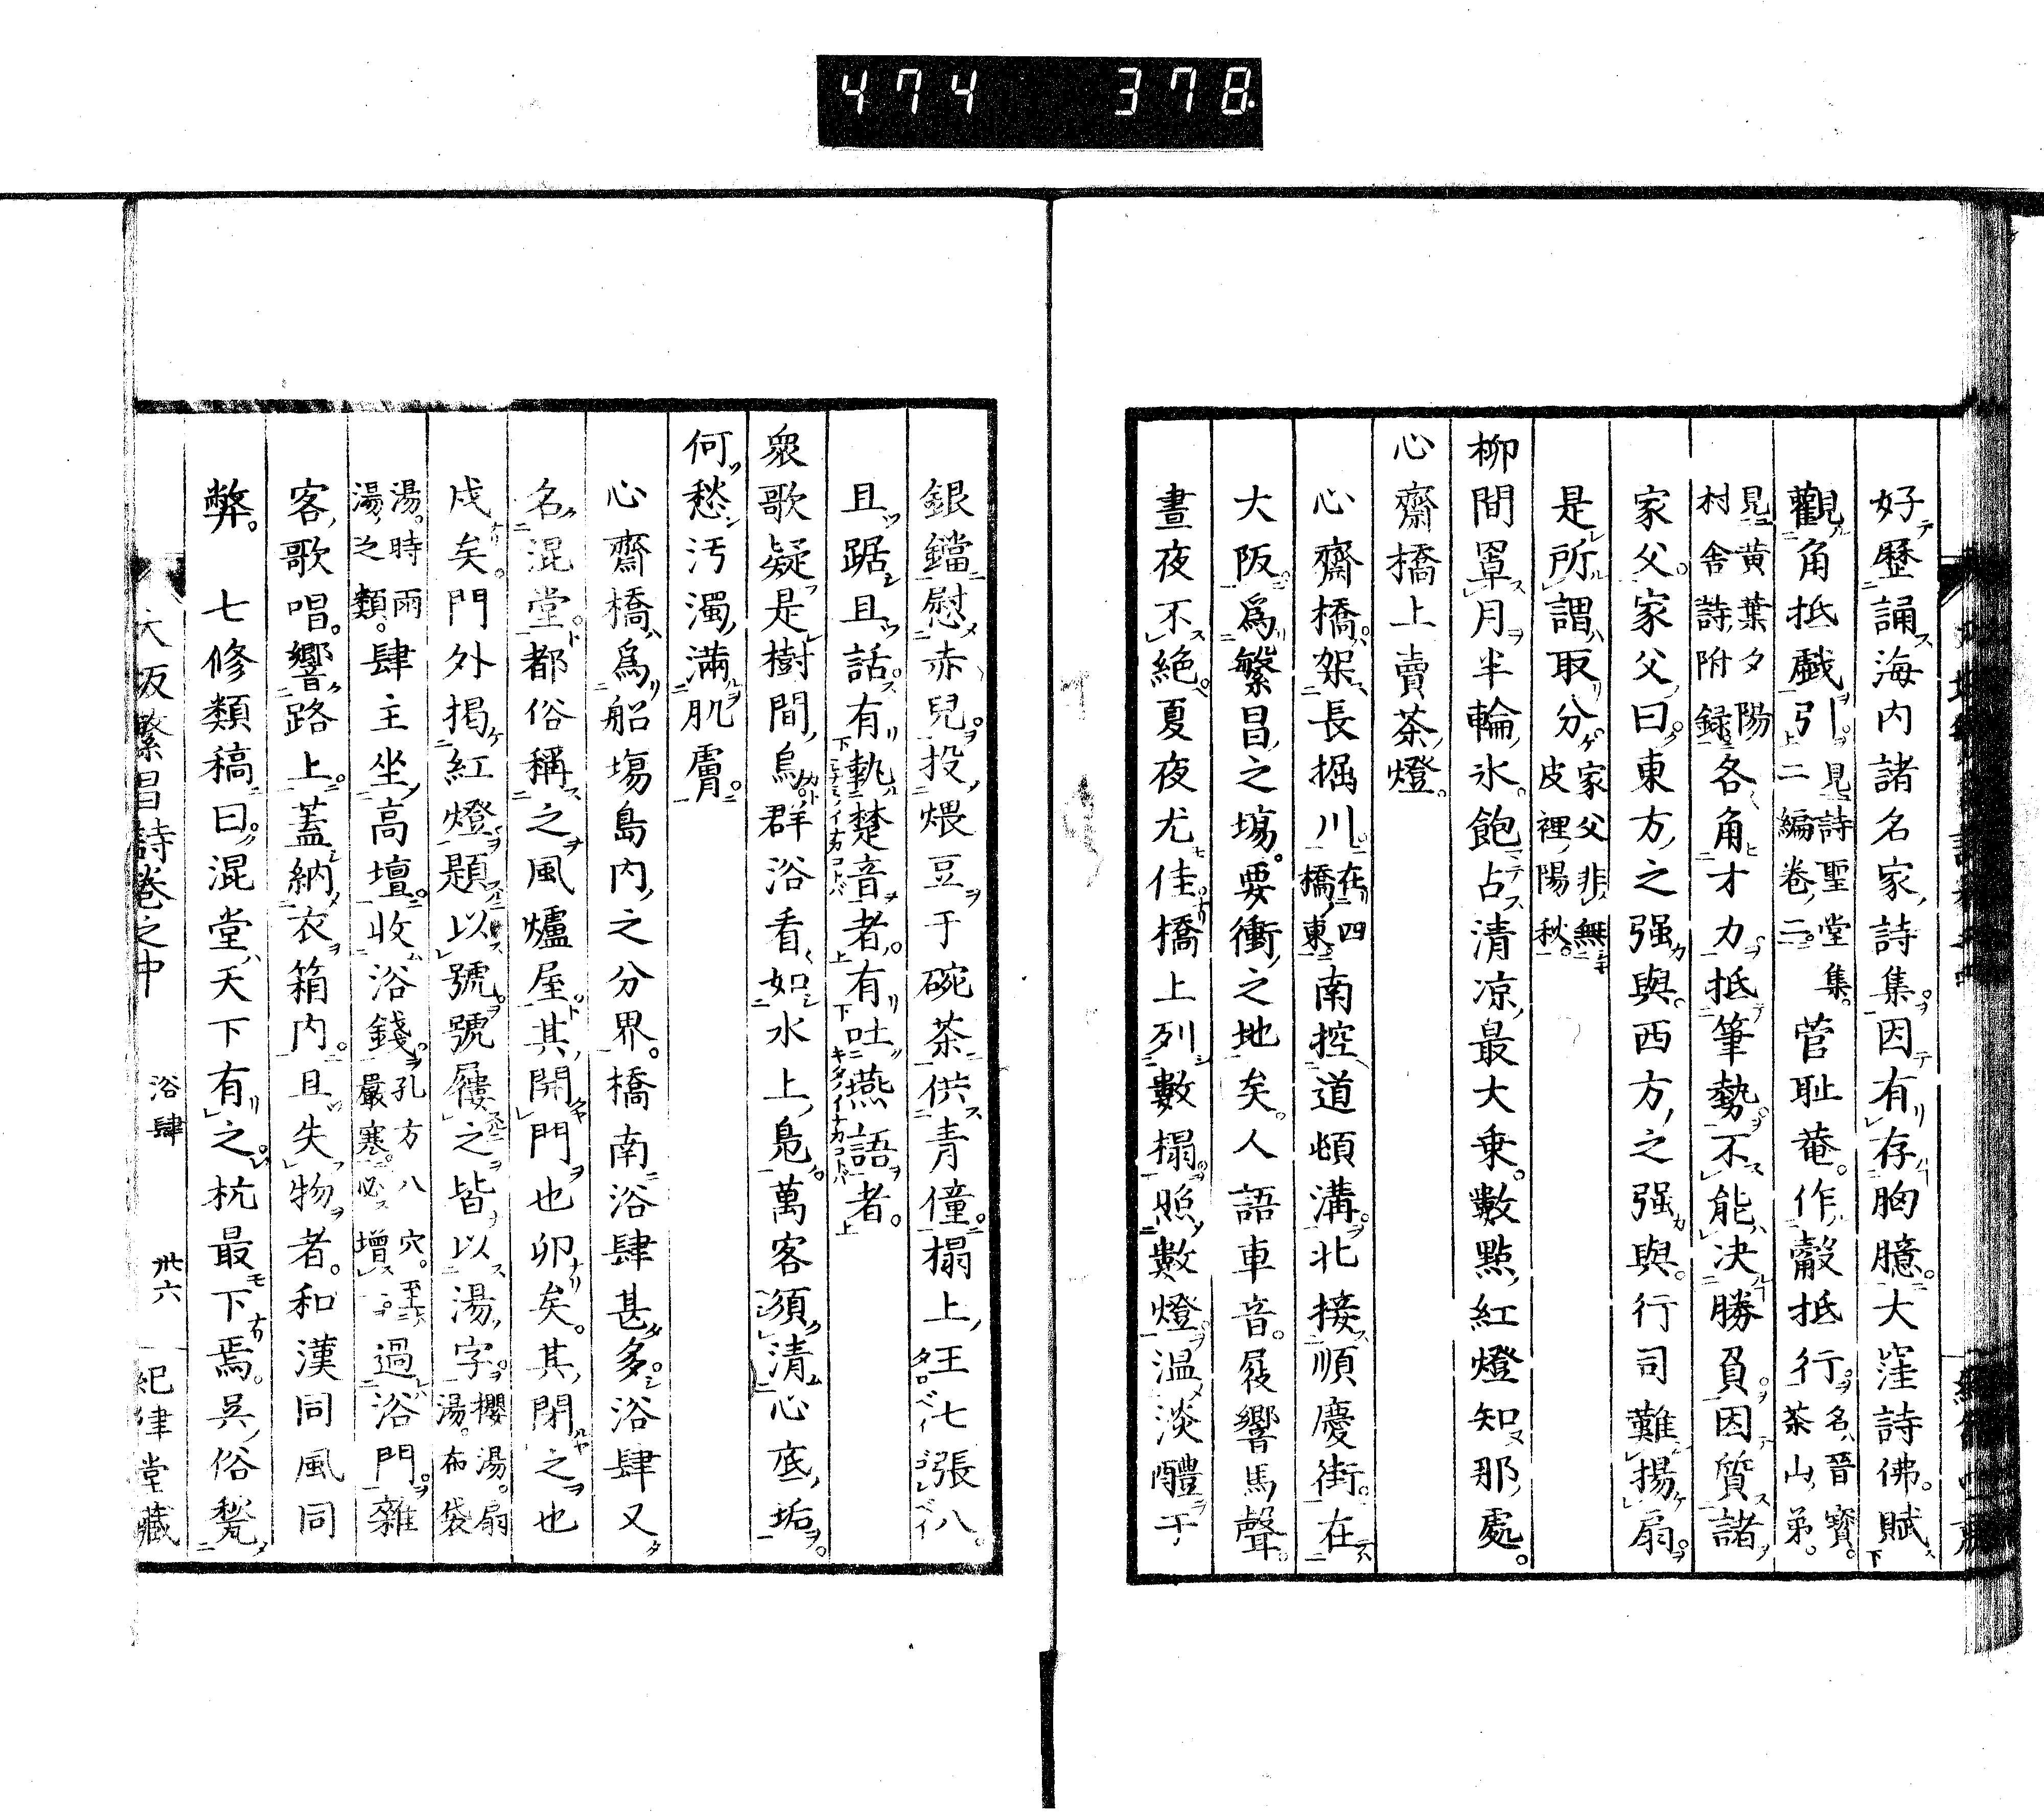 474 378
好歷誦海内諸名家詩集因有存胸臆大窪詩佛賦
觀角抵戲引見詩聖堂集二編卷二菅耻菴作觳抵行名晉寶茶山弟
見黃葉夕陽村舍詩附録各角才力抵筆勢不能决勝負因質諸
家父家父曰東方之强與西方之强與行司難揚扇
是所謂取分家父非無皮裡陽秋
柳間罩月半輪氷飽占清凉最大乗數點紅燈知那處
心齋橋上賣茶燈
心齋橋架長掘川在四橋東南控道頓溝北接順慶街在
大阪爲繁昌之塲要衝之地矣人語車音屐響馬聲
晝夜不絶夏夜夜尤佳橋上列數榻照數燈温淡醴于
銀鐺慰赤兒投煨豆于碗茶供青僮榻上王七張八
且踞且話有執楚音者有吐燕語者
衆歌疑是樹間烏群浴看如水上鳬萬客須清心底垢
何愁汚濁滿肌膚
心齋橋爲船塲島内之分界橋南浴肆甚多浴肆又
名混堂都俗稱之風爐屋其開門也卯矣其閉之也
戌矣門外掲紅燈題以號號屨之皆以湯字櫻湯扇湯布袋
湯時雨湯之類肆主坐高壇收浴錢孔方八穴至嚴寒必增過浴門雜
客歌唱響路上蓋納衣箱内且失物者和漢同風同
弊七修類稿曰混堂天下有之杭最下焉吳俗甃
大阪繁昌詩卷之中 浴肆 卅六 紀律堂藏